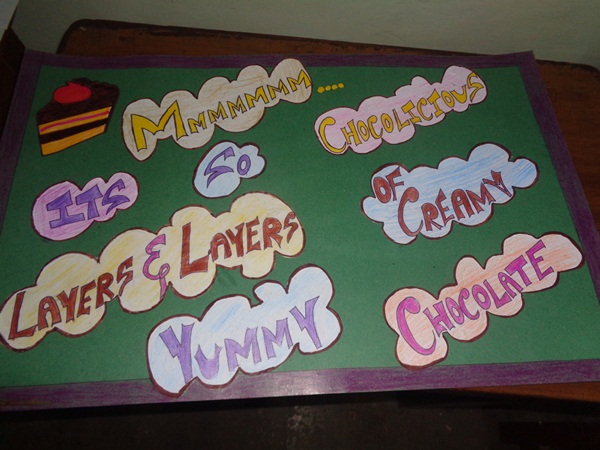 MMMMMMM....
ITS SO CHOCOLICIOUS
LAYERS & LAYERS OF CREAMY
YUMMY CHOCOLATE